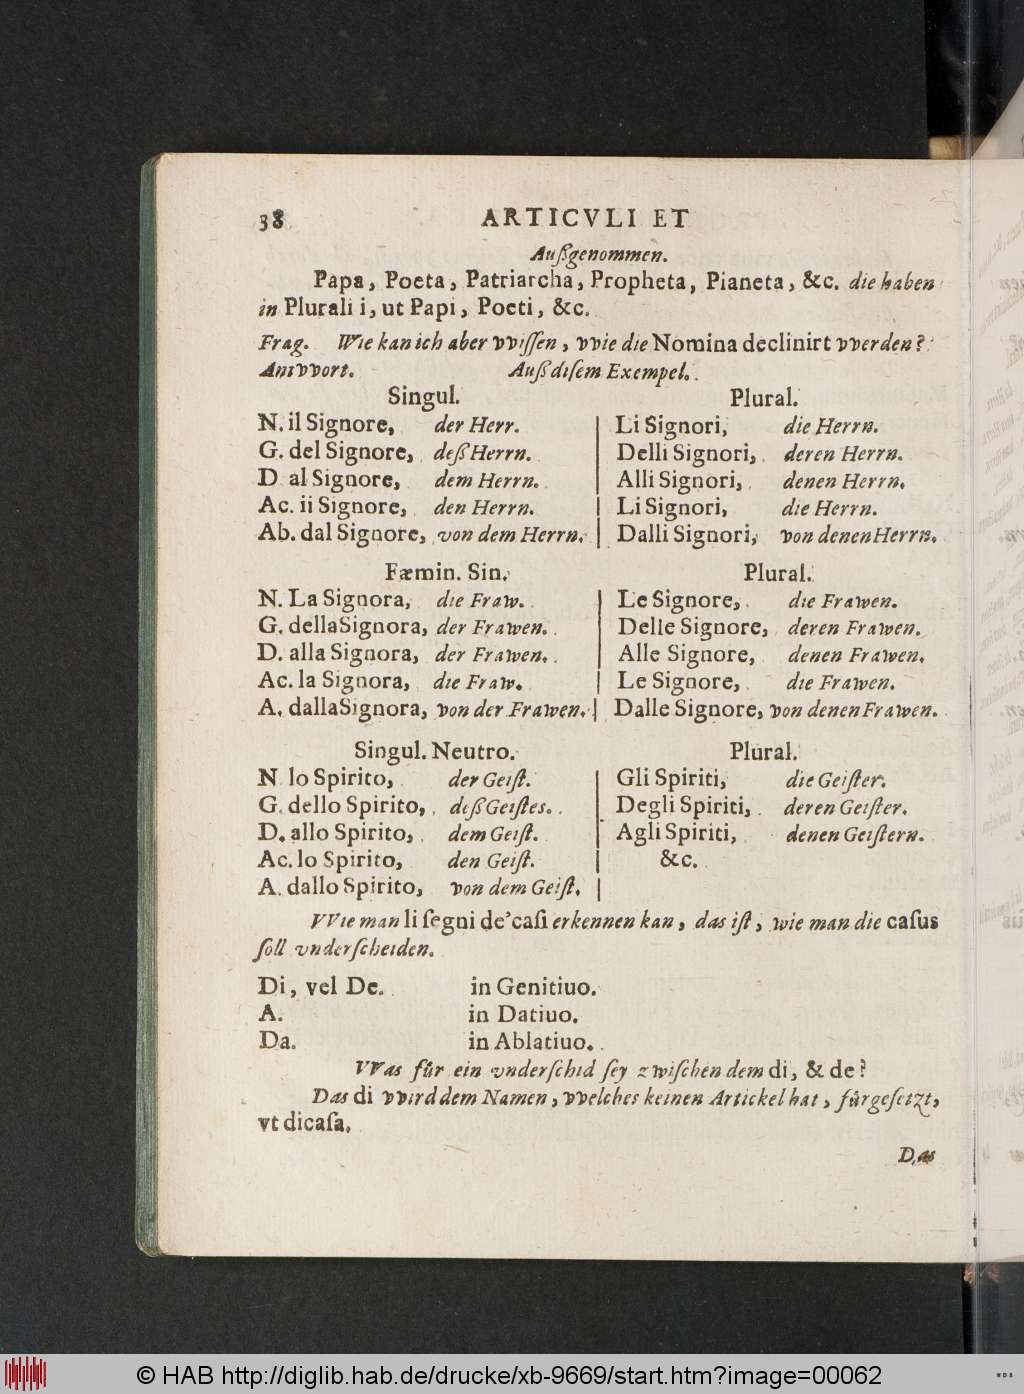 38 ARTICVLI ET
Außgenommen.
Papa, Poeta, Patriarcha, Propheta, Pianeta, &c. die haben
in Plurali i, ut Papi, Poeti, &c.
Frag. Wie kan ich aber vviſſen, vvie die Nomina declinirt vverden?
Antvvort. Auß diſem Exempel.
Singul. Plural.
N. il Signore, der Herr. Li Signori, die Herrn.
G. del Signore, deß Herrn. Delli Signori, deren Herrn.
D al Signore, dem Herrn. Alli Signori, denen Herrn.
Ac. ii Signore, den Herrn. Li Signori, die Herrn.
Ab. dal Signore, von dem Herrn. Dalli Signori, von denen Herrn.
Fæmin. Sin. Plural.
N. La Signora, die Fraw. Le Signore, die Frawen.
G. della Signora, der Frawen. Delle Signore, deren Frawen.
D. alla Signora, der Frawen. Alle Signore, denen Frawen.
Ac. la Signora, die Fraw. Le Signore, die Frawen.
A. dalla Signora, von der Frawen. Dalle Signore, von denen Frawen.
Singul. Neutro. Plural.
N lo Spirito, der Geiſt. Gli Spiriti, die Geiſter.
G. dello Spirito, deß Geiſtes. Degli Spiriti, deren Geiſter.
D. allo Spirito, dem Geiſt. Agli Spiriti, denen Geiſtern.
Ac. lo Spirito, den Geiſt. &c.
A. dallo Spirito, von dem Geiſt.
VVie man li ſegni de'caſi erkennen kan, das iſt, wie man die caſus
ſoll vnderſcheiden.
Di, vel De. in Genitiuo.
A. in Datiuo.
Da. in Ablatiuo.
VVas für ein vnderſchid ſey zwiſchen dem di, & de?
Das di vvird dem Namen, vvelches keinen Artickel hat, fürgeſetzt,
vt dicaſa.
Das
© HAB http://diglib.hab.de/drucke/xb-9669/start.htm?image=00062